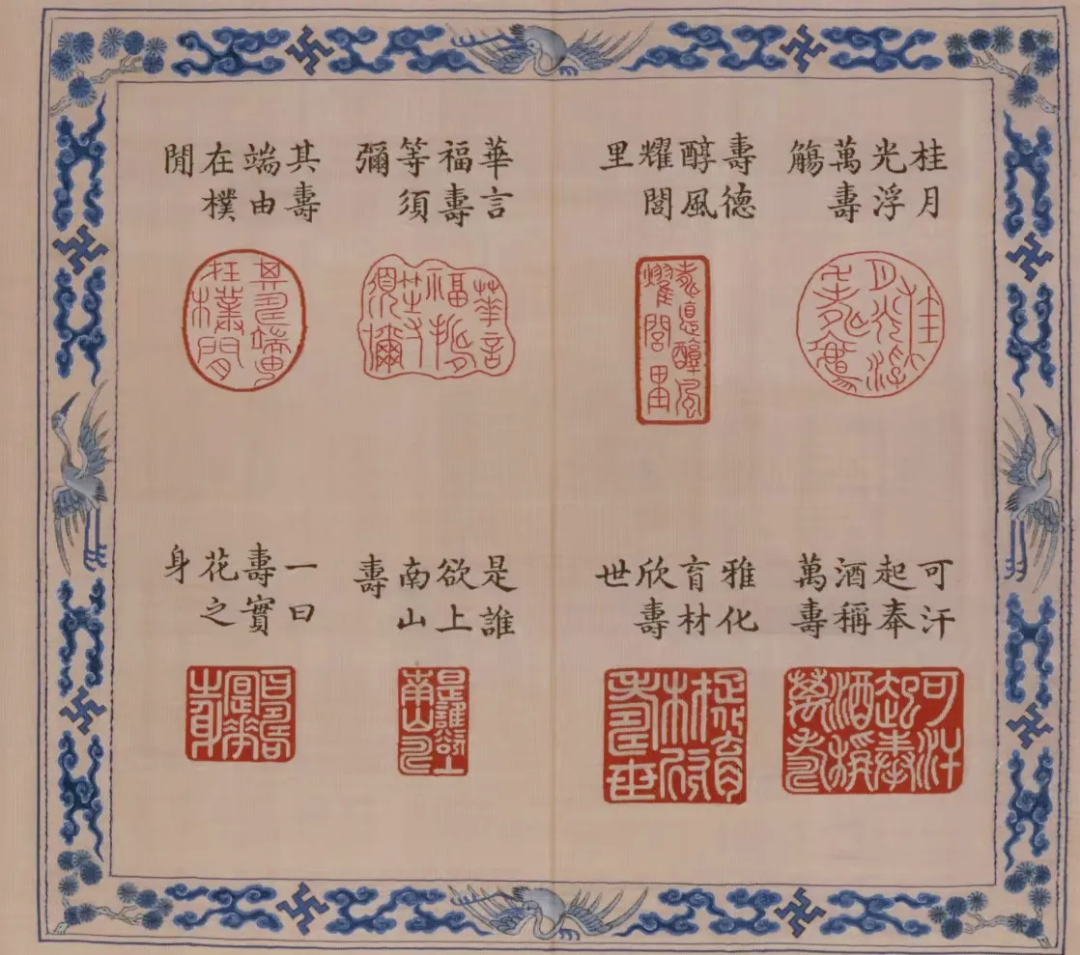 桂月
光浮
萬壽
觴
壽德
醇風
耀閤
里
華言
福壽
等須
彌
其壽
端由
在樸
閒
可汗
起奉
酒稱
萬壽
雅化
育材
欣壽
世
是誰
欲上
南山
壽
一曰
壽實
花之
身